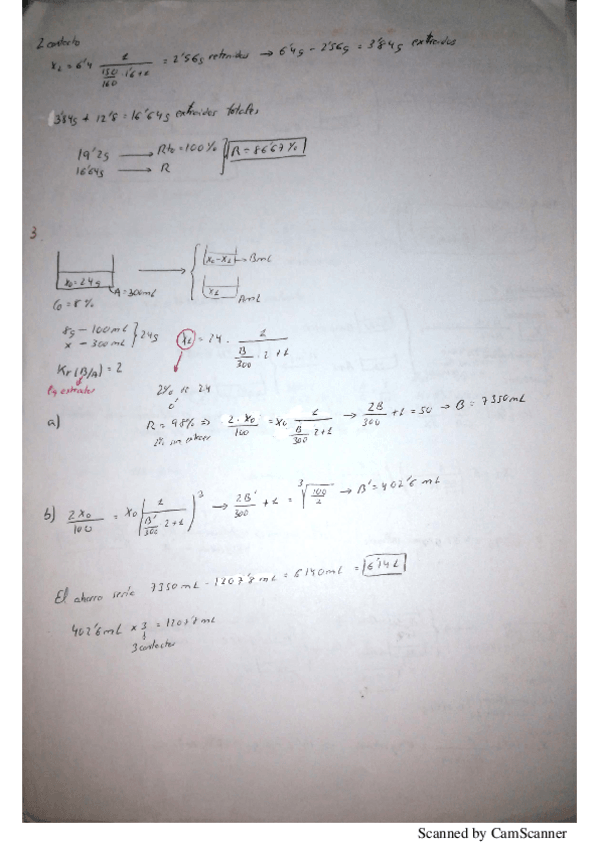 2 contacto
x₂ = 6'4 1/(150/160 · 1'6 + 1) = 2'56g retenidos → 6'4g - 2'56g = 3'84g extraidos
3'84g + 12'8 = 16'64g extraidos totales
19'2g → Rto = 100%
16'64g → R
R = 86'67%
3.
x₀ = 24g
A = 300mL
C₀ = 8%
x₀ - x₁ → B mL
x₁
A mL
8g - 100mL
x - 300mL } 24g
x₁ = 24 · 1/(B/300 · 2 + 1)
Kr (B/A) = 2
a)
R = 98% ⇒ 2·x₀/100 = x₀ 1/(B/300 2 + 1) → 2B/300 + 1 = 50 → B = 7350mL
b) 2x₀/100 = x₀ (1/(B'/300 2 + 1))³ → 2B'/300 + 1 = ³√(100/2) → B' = 402'6 mL
El ahorro sería 7350mL - 1207'8mL = 6140mL = 6'14L
402'6mL x 3 = 1207'8mL
3 contactos
Scanned by CamScanner